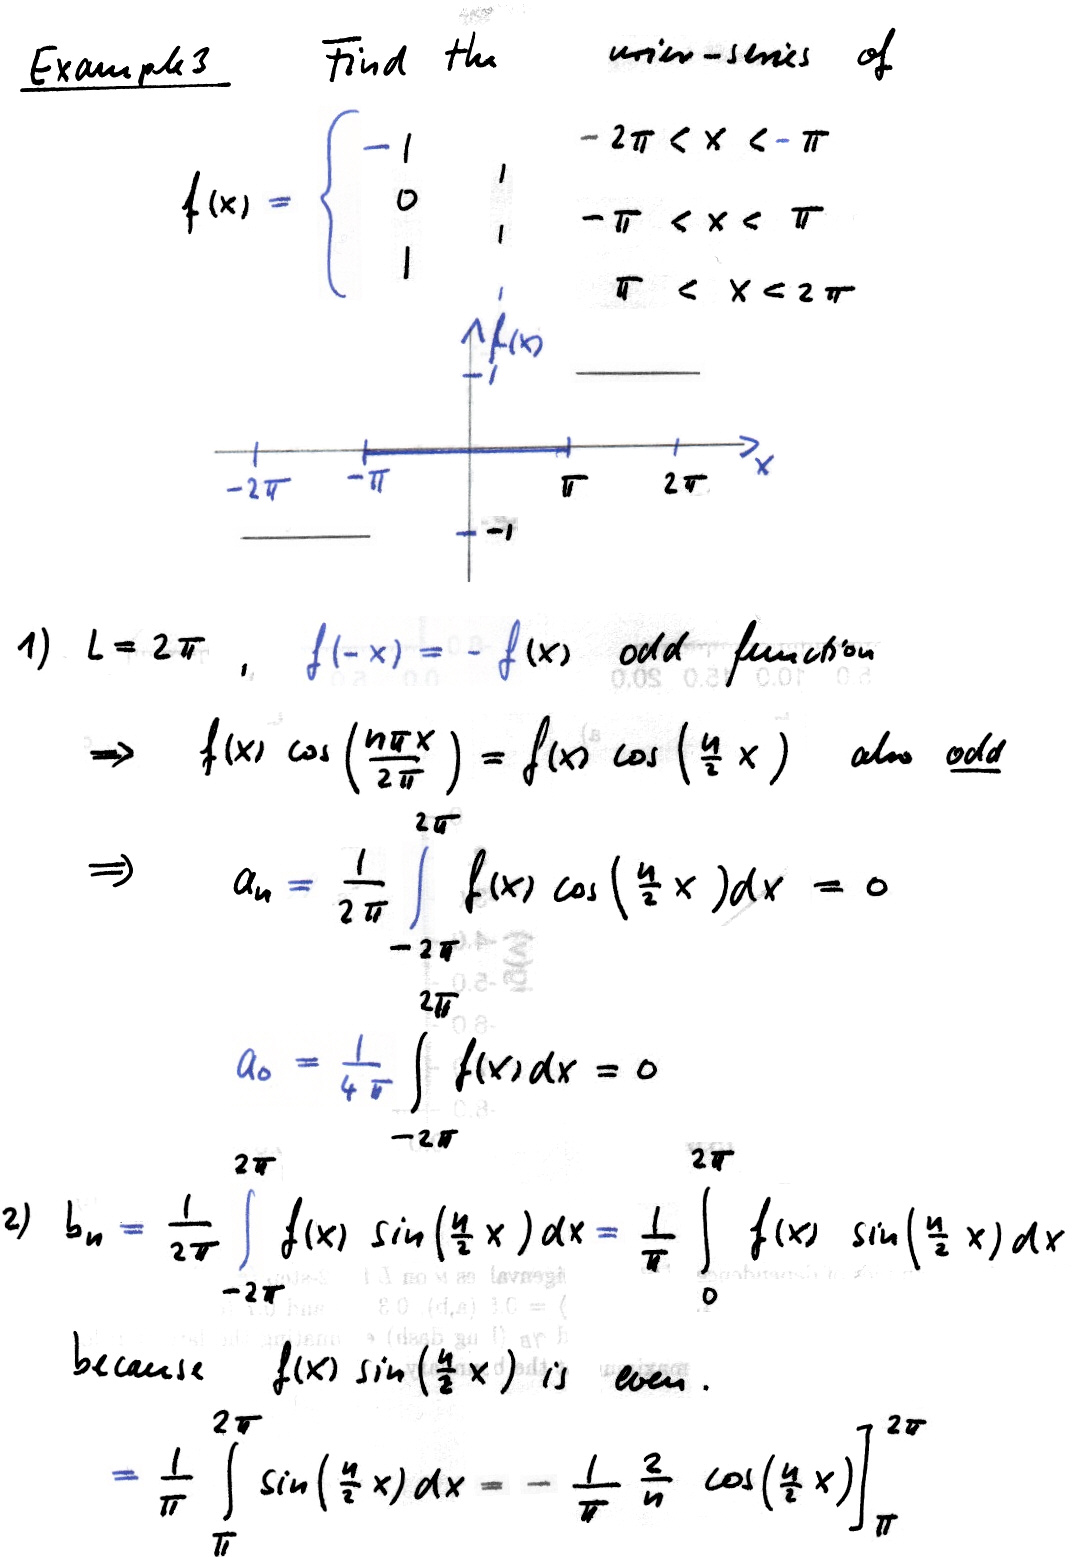 Example 3 Find the urier-series of
f(x) = { -1 , -2π < x < -π
0 , -π < x < π
1 , π < x < 2π
f(x)
1
x
-2π -π π 2π
-1
1) L = 2π , f(-x) = - f(x) odd function
⇒ f(x) cos(nπx/2π) = f(x) cos(n/2 x) also odd
⇒ aₙ = 1/2π ∫_{-2π}^{2π} f(x) cos(n/2 x) dx = 0
a₀ = 1/4π ∫_{-2π}^{2π} f(x) dx = 0
2) bₙ = 1/2π ∫_{-2π}^{2π} f(x) sin(n/2 x) dx = 1/π ∫_{0}^{2π} f(x) sin(n/2 x) dx
because f(x) sin(n/2 x) is even.
= 1/π ∫_{π}^{2π} sin(n/2 x) dx = - 1/π 2/n cos(n/2 x)]_{π}^{2π}